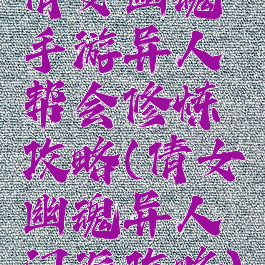 倩女幽魂
手游异人
帮会修炼
攻略(倩女
幽魂异人